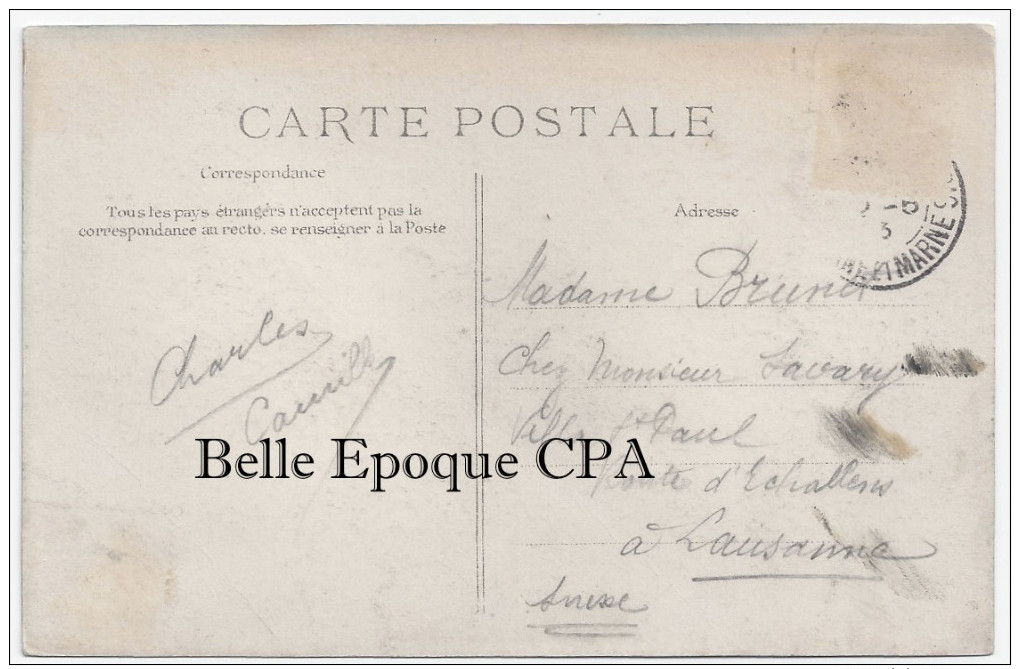 CARTE POSTALE
Correspondance
Tous les pays étrangers n'acceptent pas la
correspondance au recto. se renseigner à la Poste
Charles
Camille
Adresse
Madame Brunet
Chez Monsieur Savary
Villa St Paul
Route d'Echallens
à Lausanne
Suisse
ET MARNE
Belle Epoque CPA